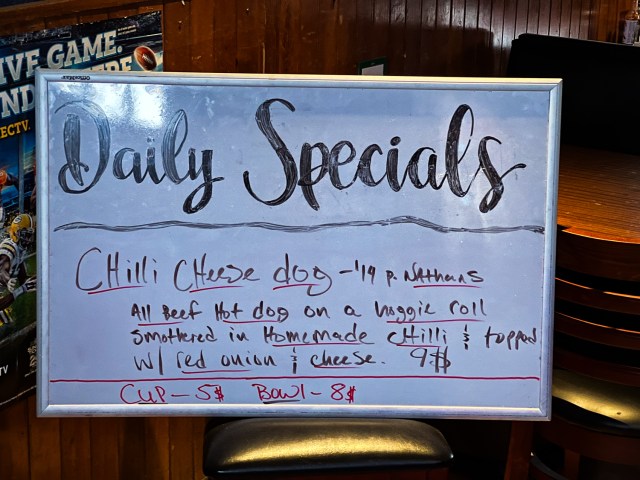 IVE GAME.
ND
ECTV.
Daily Specials
CHilli CHeese dog - 1/4 p. NATHANS
All Beef Hot dog on a hoggie roll
smothered in Homemade cHilli & topped
w/ red onion & cheese. 9$
CUP - 5$ Bowl - 8$
TV